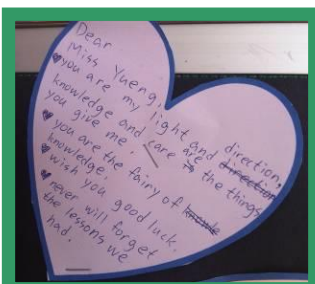 Dear
Miss Yueng,
you are my light and direction,
knowledge and care are the things
you give me.
you are the fairy of
knowledge.
wish you good luck.
never will forget
the lessons we
had.